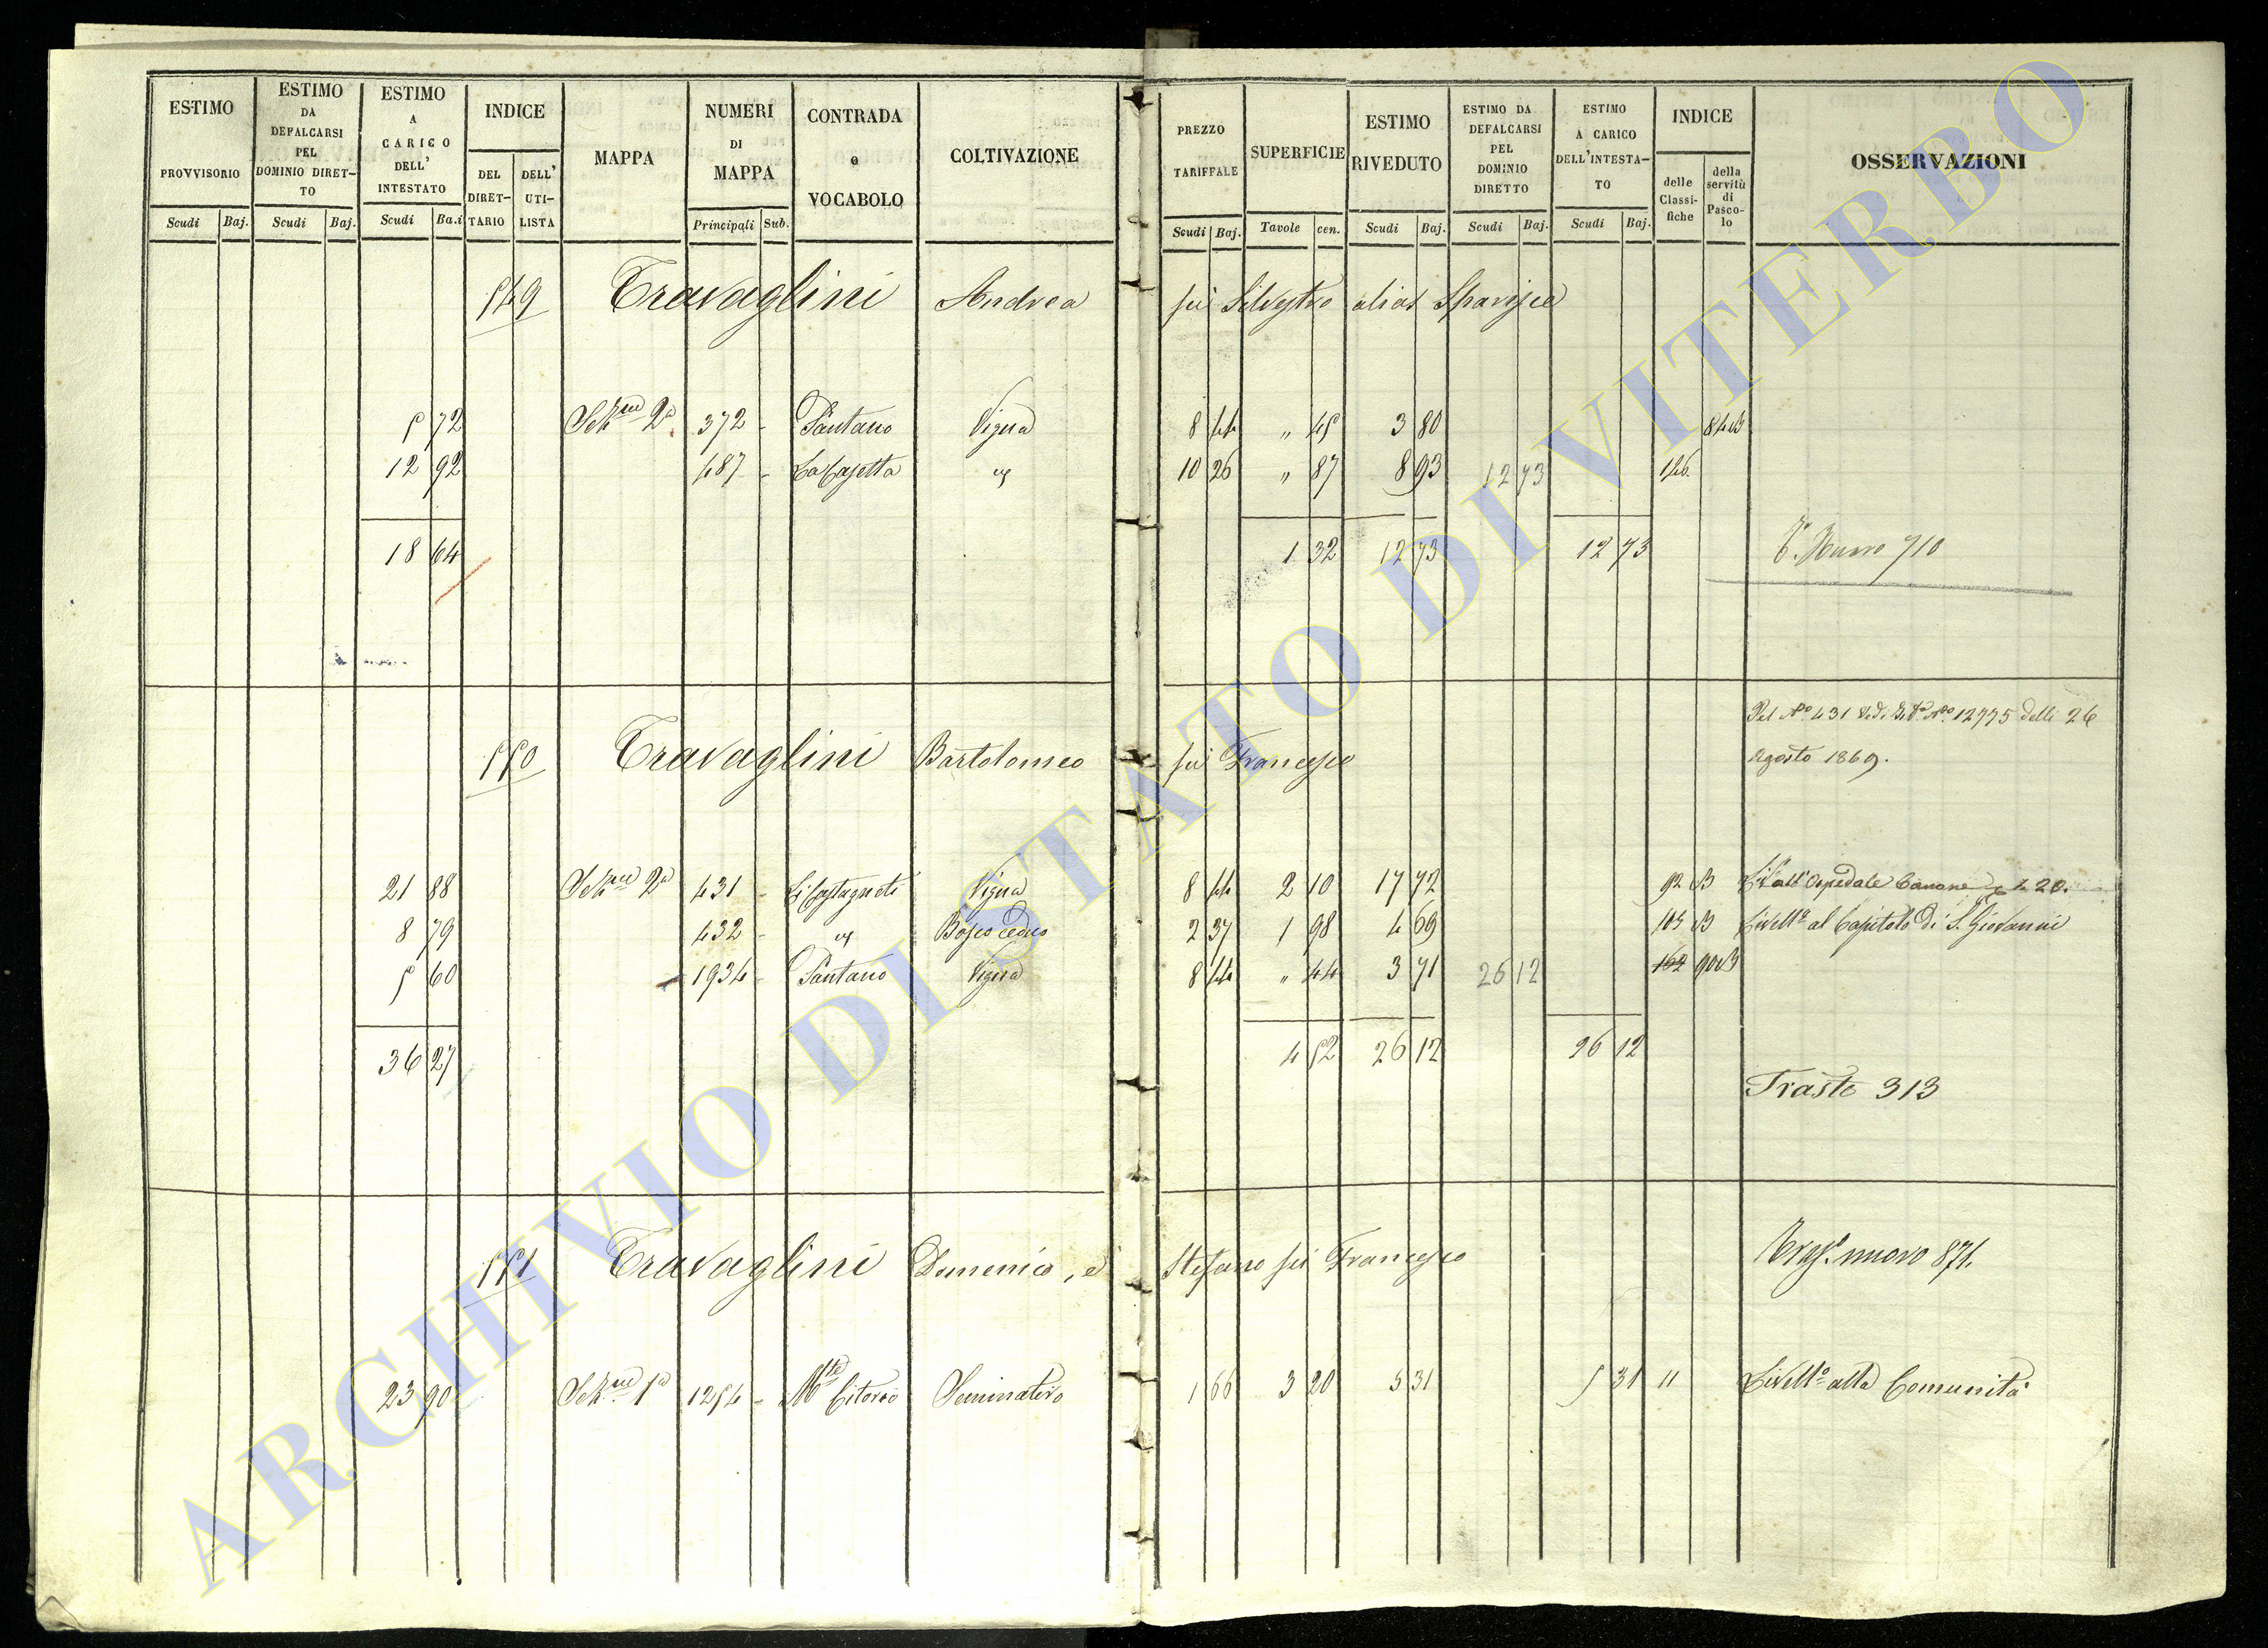 ESTIMO PROVVISORIO Scudi Baj.
ESTIMO DA DEFALCARSI PEL DOMINIO DIRETTO Scudi Baj.
ESTIMO A CARICO DELL' INTESTATO Scudi Ba.i
INDICE DEL DIRETTARIO DELL' UTILISTA
MAPPA
NUMERI DI MAPPA Principali Sub.
CONTRADA o VOCABOLO
COLTIVAZIONE
PREZZO TARIFFALE Scudi Baj.
SUPERFICIE Tavole cen.
ESTIMO RIVEDUTO Scudi Baj.
ESTIMO DA DEFALCARSI PEL DOMINIO DIRETTO Scudi Baj.
ESTIMO A CARICO DELL'INTESTATO Scudi Baj.
INDICE delle Classifiche della servitù di Pascolo
OSSERVAZIONI
549 Travaglini Andrea fu Silvestro alias
5 72 2a 372 - Pantano Vigna 8 44 " 45 3 80 84 B
12 92 487 - La Casetta " 10 26 " 87 8 93 12 73 146.
18 64 1 32 12 73 12 73 710
Pel No 431 No 12775 delli 26
550 Travaglini Bartolomeo fu Francesco Agosto 1869.
21 88 2a 431 - Li Castagneti Vigna 8 44 2 10 17 72 92 B all'Ospedale Canone 1.20.
8 79 432 - " Bosco ceduo 2 37 1 98 4 69 105 B Livello al Capitolo di S. Giovanni
5 60 1934 - Pantano Vigna 8 44 " 44 3 71 26 12 162 90 B
36 27 4 52 26 12 26 12
Trasto 313
551 Travaglini Domenico, e Stefano fu Francesco nuovo 871.
23 90 1a 1254 - Mte Citorio Seminativo 1 66 3 20 5 31 5 31 11 Livello alla Comunità
ARCHIVIO DI STATO DI VITERBO